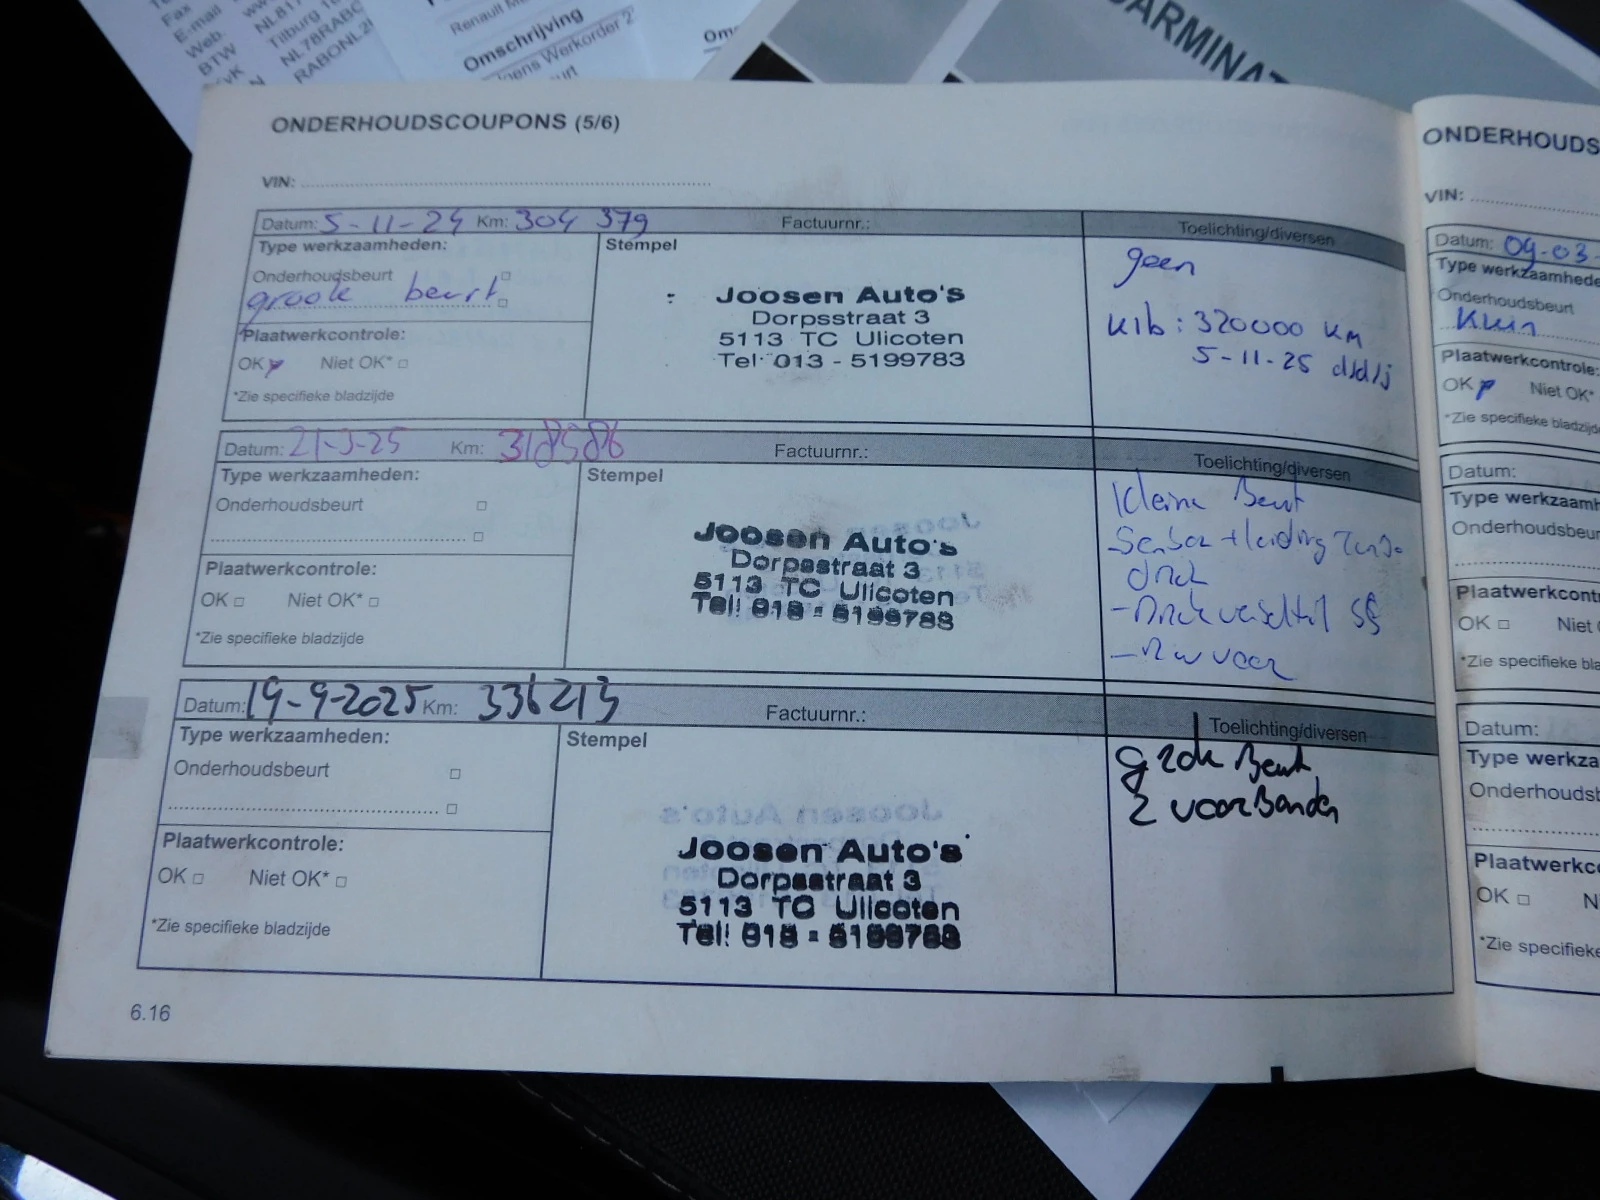 Fax
E-mail
Web.
BTW
Tilburg
NL78RABC
RABONL2
Omschrijving
Werkorder 2
ARMINA
ONDERHOUDSCOUPONS (5/6)
VIN:
Datum: 5-11-24 Km: 304 379 Factuurnr.: Toelichting/diversen
Type werkzaamheden: Stempel
Onderhoudsbeurt
groote beurt
Plaatwerkcontrole:
OK Niet OK*
*Zie specifieke bladzijde
Joosen Auto's
Dorpsstraat 3
5113 TC Ulicoten
Tel: 013 - 5199783
geen
klb: 320000 km
5-11-25 d/d/j
Datum: 21-3-25 Km: 318586 Factuurnr.: Toelichting/diversen
Type werkzaamheden: Stempel
Onderhoudsbeurt
Plaatwerkcontrole:
OK Niet OK*
*Zie specifieke bladzijde
Joosen Auto's
Dorpsstraat 3
5113 TC Ulicoten
Tel: 013 - 5199783
Kleine Beurt
Sensor + leiding
druk
- Drukverschil
voor
Datum: 19-9-2025 Km: 336213 Factuurnr.: Toelichting/diversen
Type werkzaamheden: Stempel
Onderhoudsbeurt
Plaatwerkcontrole:
OK Niet OK*
*Zie specifieke bladzijde
Joosen Auto's
Dorpsstraat 3
5113 TC Ulicoten
Tel: 013 - 5199783
grote Beurt
2 voorBanden
6.16
ONDERHOUDS
VIN:
Datum: 09-03-
Type werkzaamhede
Onderhoudsbeurt
Klein
Plaatwerkcontrole:
OK Niet OK*
*Zie specifieke bladzijd
Datum:
Type werkzaamh
Onderhoudsbeur
Plaatwerkcontr
OK Niet
*Zie specifieke bla
Datum:
Type werkza
Onderhoudsb
Plaatwerkco
OK N
*Zie specifieke